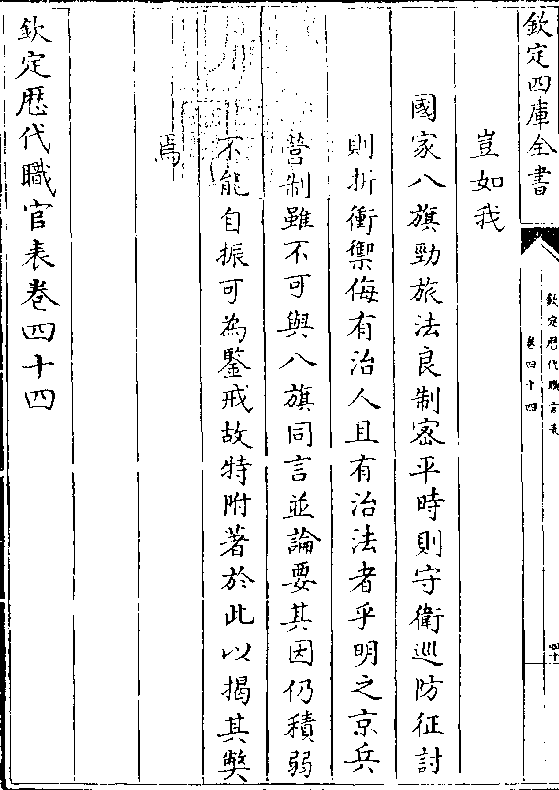 欽定四庫全書
欽定歷代職官表
卷四十四
四十
豈如我
國家八旗勁旅法良制密平時則守衛巡防征討
則折衝禦侮有治人且有治法者乎明之京兵
營制雖不可與八旗同言並論要其因仍積弱
不能自振可為鑒戒故特附著於此以揭其弊
焉
欽定歷代職官表卷四十四